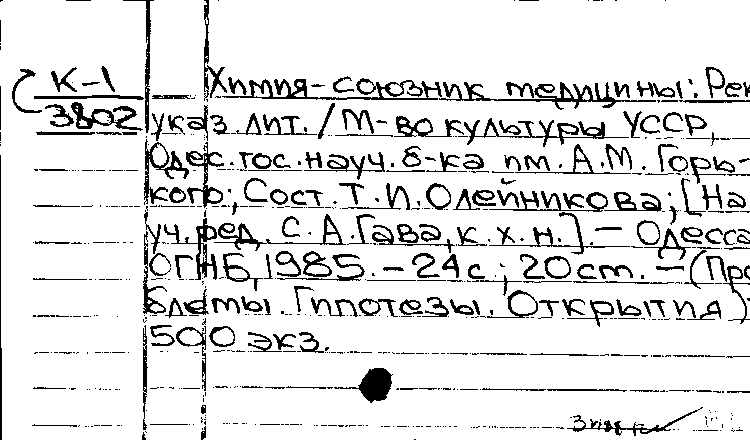 К-1 Химия-союзник медицины: Рек
3802 указ. лит. / М-во культуры УССР,
Одес. гос. науч. б-ка им. А.М. Горь-
кого; Сост. Т.И. Олейникова; [На
уч. ред. С.А. Гава, к.х.н.]. - Одесса
ОГНБ, 1985. - 24 с.; 20 см. - (Про
блемы. Гипотезы. Открытия)
500 экз.